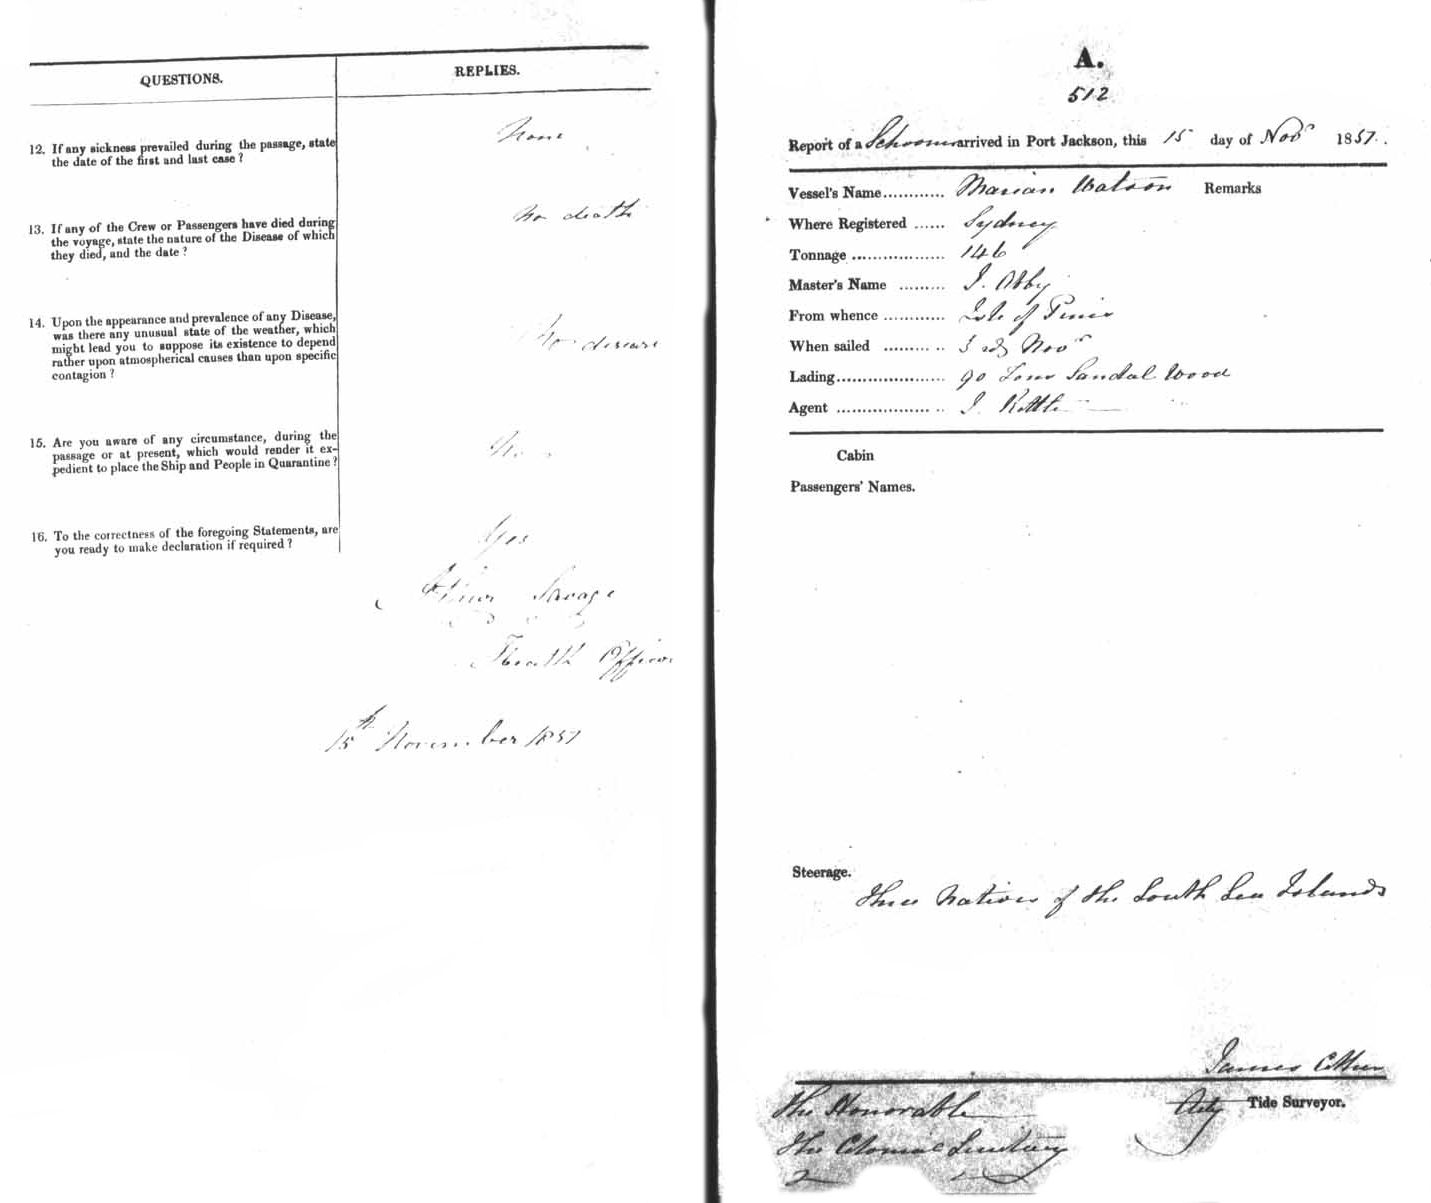 QUESTIONS.
REPLIES.
12. If any sickness prevailed during the passage, state
the date of the first and last case ?
None
13. If any of the Crew or Passengers have died during
the voyage, state the nature of the Disease of which
they died, and the date ?
No death
14. Upon the appearance and prevalence of any Disease,
was there any unusual state of the weather, which
might lead you to suppose its existence to depend
rather upon atmospherical causes than upon specific
contagion ?
No disease
15. Are you aware of any circumstance, during the
passage or at present, which would render it ex-
pedient to place the Ship and People in Quarantine ?
No
16. To the correctness of the foregoing Statements, are
you ready to make declaration if required ?
Yes
Savage
Health Officer
15th November 1851
A.
512
Report of a Schooner arrived in Port Jackson, this 15 day of Novr 1851.
Vessel's Name............ Marian Watson Remarks
Where Registered ...... Sydney
Tonnage .................. 146
Master's Name ......... J.
From whence ............ Isle of Pines
When sailed ......... .. 3rd Novr
Lading...................... 90 Tons Sandal Wood
Agent .................. .. J.
Cabin
Passengers' Names.
Steerage.
Three Natives of the South Sea Islands
James
Actg Tide Surveyor.
The Honorable
The Colonial Secretary